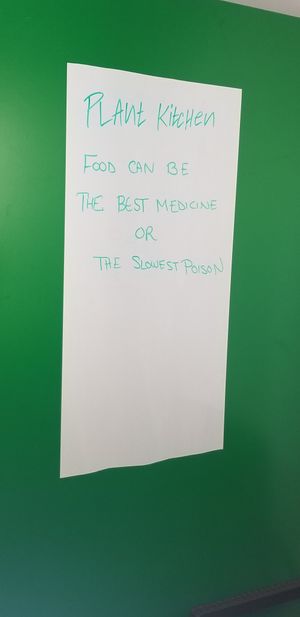 PLANt KitcHen
FOOD CAN BE
THE BEST MEDICINE
OR
THE SLOWEST POISON